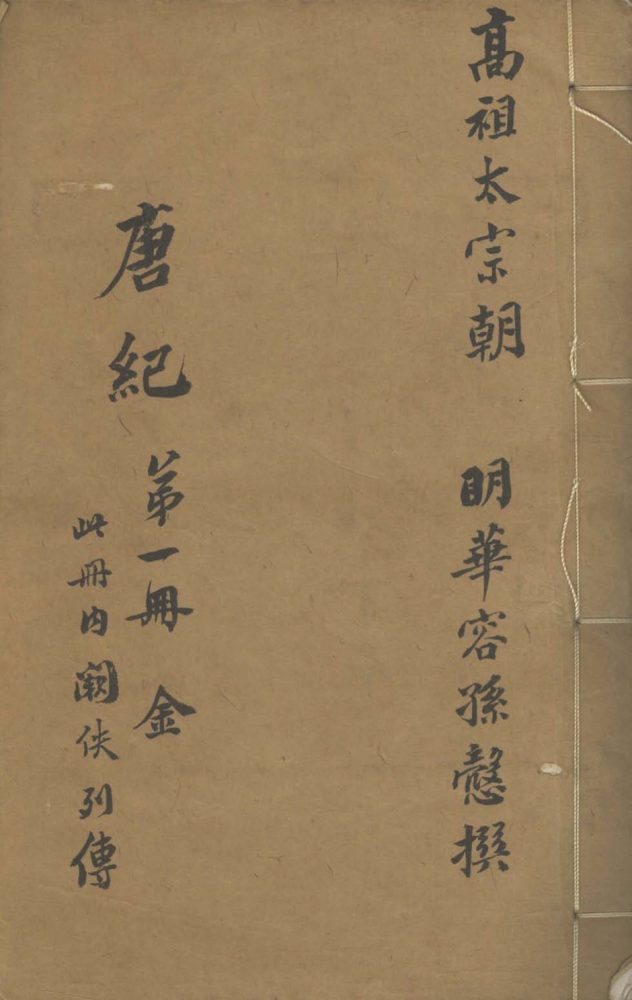 高祖太宗朝 明華容孫慤撰
唐紀第一冊 金
此冊內闕佚列傳